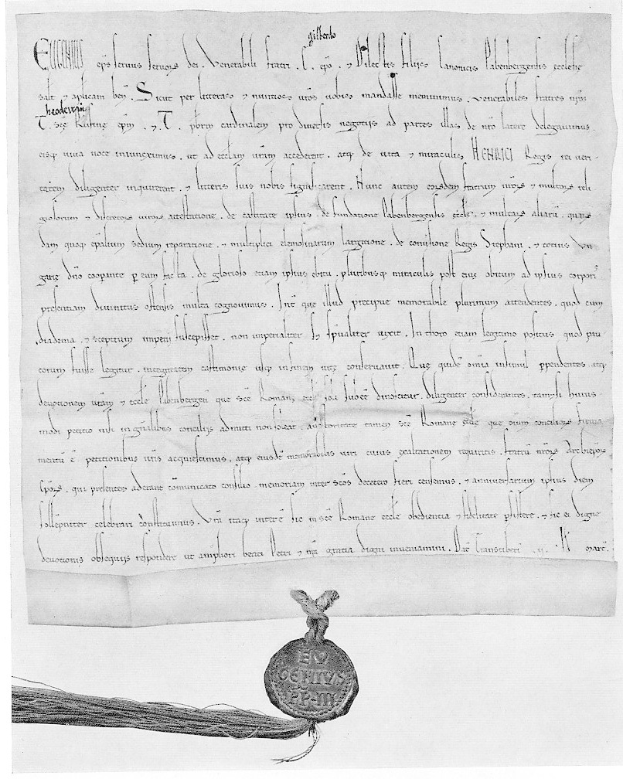 gilberto
EUGENIUS eps servus servorꝫ dei. Venerabili fratri .E. epo. & Dilectis filiis Canonicis Babenbergensis ecclesie
salt & aplicam ben. Sicut per litteras & nuntios vros vobis mandasse meminimus. venerabiles fratres nros
theodevinum
T. sce Rufine epm. & T. pbrm cardinalem pro diversis negotiis ad partes illas de nro latere delegavimus
eisq; viva voce iniunximus. ut ad ecclam vram accederent. atq; de vita & miraculis HENRICI Regis rei veri
tatem diligenter inquirerent. & litteris suis nobis significarent. Nunc autem eorꝫdem fratrum nrorꝫ & multorꝫ reli
giosorum & discretorꝫ virorꝫ attestatione. de castitate ipsius. de fundatione Babenbergensis eccle. & multarꝫ aliarꝫ. quarun
dam quoq; epalium sedium reparatione. & multiplici elemosinarum largitione. de conversione Regis Stephani. & totius Un
garie dno coopante p eum facta. de glorioso etiam ipsius obitu. pluribusq; miraculis post eius obitum ad ipsius corporis
presentiam divinitus ostensis multa cognovimus. Int que illud precipue memorabile plurimum attendentes. quod cum
diadema. & sceptrum imperii suscepisset. non imperialiter sꝫ spualiter vixit. In thoro etiam legitimo positus quod pau
corum fuisse legitur. integritatem castimonie usq; in finem vite conservavit. Que quidē omia insimul ppendentes. atq;
devotionem vram & eccle Babenbergen que sce Romane eccle soli subee dinoscitur. diligenter considerantes. tamsi huius
modi petitio nisi in gnalibus conciliis admitti non soleat. auctoritate tamen sce Romane eccle que omium conciliorꝫ firma
mentū ē. petitionibus vris acquiescimus. atq; eiusdē memorabilis viri cuius exaltationem requiritis. fratrū nrorꝫ Archiepor
eporꝫ. qui presentes aderant comunicato consilio. memoriam inter scos decetero fieri censemus. & anniversarium ipsius diem
sollempniter celebrari constituimus. Vra itaq; interē sic in sce Romane eccle obedientia & fidelitate psistere. & sic ei digne
devotionis obsequiis respondere ut ampliori beati Petri & nra gratia digni inveniamini. Dat Transtiberī .ii. Id marc.
EU
GENIUS
PP·III·